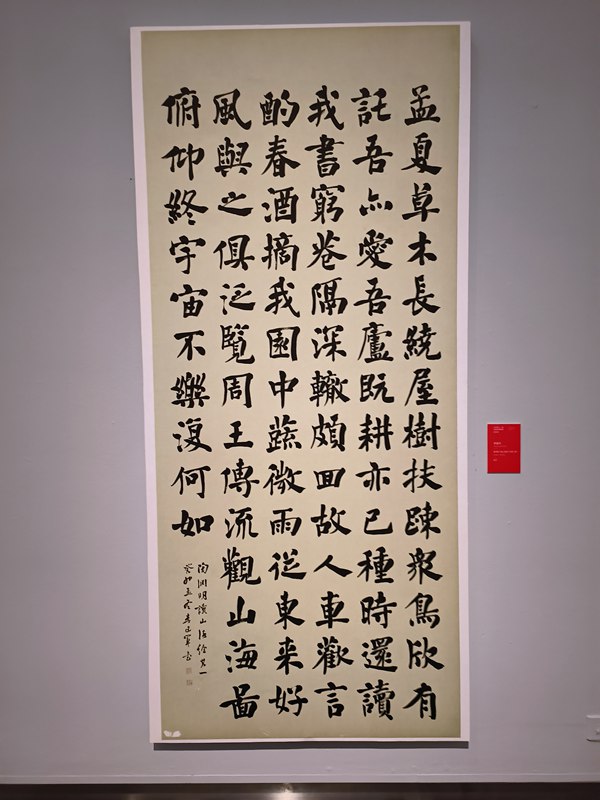 孟夏草木長繞屋樹扶踈衆鳥欣有
託吾亦愛吾廬既耕亦已種時還讀
我書窮巷隔深轍頗回故人車歡言
酌春酒摘我園中蔬微雨從東来好
風與之俱泛覽周王傳流觀山海圖
俯仰終宇宙不樂復何如
陶淵明讀山海經其一
癸卯